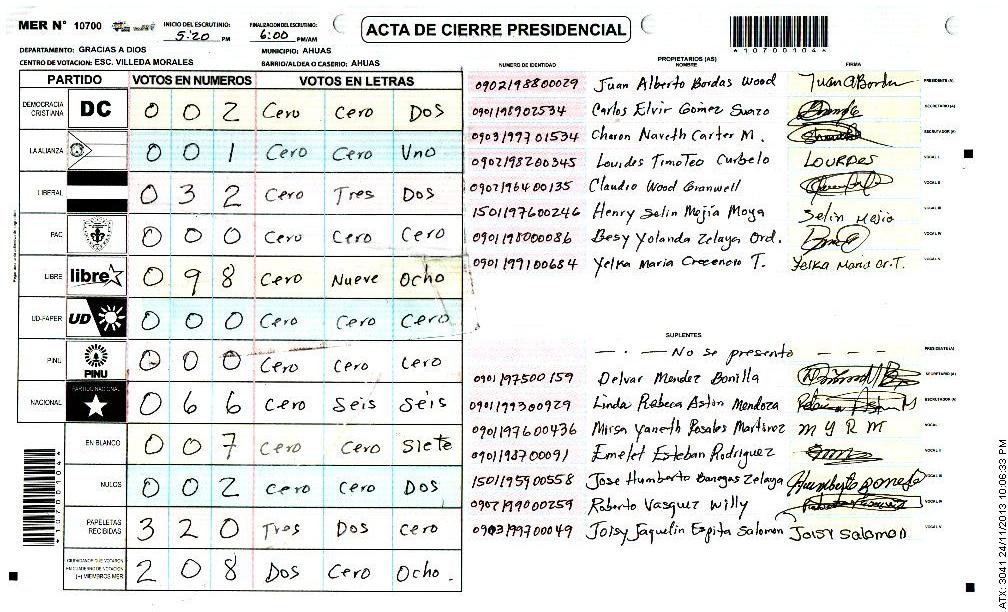 MER Nº 10700 INICIO DEL ESCRUTINIO: 5:20 PM FINALIZACION DEL ESCRUTINIO: 6:00 PM/AM
ACTA DE CIERRE PRESIDENCIAL
*10700104*
DEPARTAMENTO: GRACIAS A DIOS MUNICIPIO: AHUAS
CENTRO DE VOTACION: ESC. VILLEDA MORALES BARRIO/ALDEA O CASERIO: AHUAS
PARTIDO VOTOS EN NUMEROS VOTOS EN LETRAS
DEMOCRACIA CRISTIANA DC 0 0 2 Cero Cero Dos
LA ALIANZA 0 0 1 Cero Cero Uno
LIBERAL 0 3 2 Cero Tres Dos
PAC 0 0 0 Cero Cero Cero
LIBRE libre 0 9 8 Cero Nueve Ocho
UD-FAPER UD 0 0 0 Cero Cero Cero
PINU PINU 0 0 0 Cero Cero Cero
NACIONAL PARTIDO NACIONAL 0 6 6 Cero Séis Séis
EN BLANCO 0 0 7 Cero Cero Siete
NULOS 0 0 2 Cero Cero Dos
PAPELETAS RECIBIDAS 3 2 0 Tres Dos Cero
CIUDADANOS QUE VOTARON EN CUADERNO DE VOTACION (+) MIEMBROS MER 2 0 8 Dos Cero Ocho.
*10700104*
PROPIETARIOS (AS)
NUMERO DE IDENTIDAD NOMBRE FIRMA
0902198800029 Juan Alberto Bordas Wood Juan A Bordas PRESIDENTE (A)
0901198902534 Carlos Elvir Gomez Suazo SECRETARIO (A)
0903199701534 Charon Naveth Carter M. ESCRUTADOR (A)
0902198200345 Lourdes Timoteo Curbelo LOURDES VOCAL I
0902196400135 Claudio Wood Granwell VOCAL II
1501197600246 Henry Selin Mejía Moya Selin Mejia VOCAL III
0901198000086 Besy Yolanda Zelaya Ord. VOCAL IV
0901199100684 Yelka Maria Crecencio T. Yelka Maria Cr. T. VOCAL V
SUPLENTES
— . — No se presento — — — PRESIDENTE (A)
0901197500159 Delvar Mendez Bonilla SECRETARIO (A)
0901199300929 Linda Rebeca Aston Mendoza ESCRUTADOR (A)
0901197600436 Mirsa Yaneth Rosales Martinez M Y R M VOCAL I
0901198700091 Emelet Esteban Rodriguez VOCAL II
1501195900558 Jose Humberto Banegas Zelaya Humberto VOCAL III
0902199000259 Roberto Vasquez Willy VOCAL IV
0903199700049 Joisy Jaquelin Espita Salomon Joisy Salomon VOCAL V
ATX: 3041 24/11/2013 10:06:33 PM